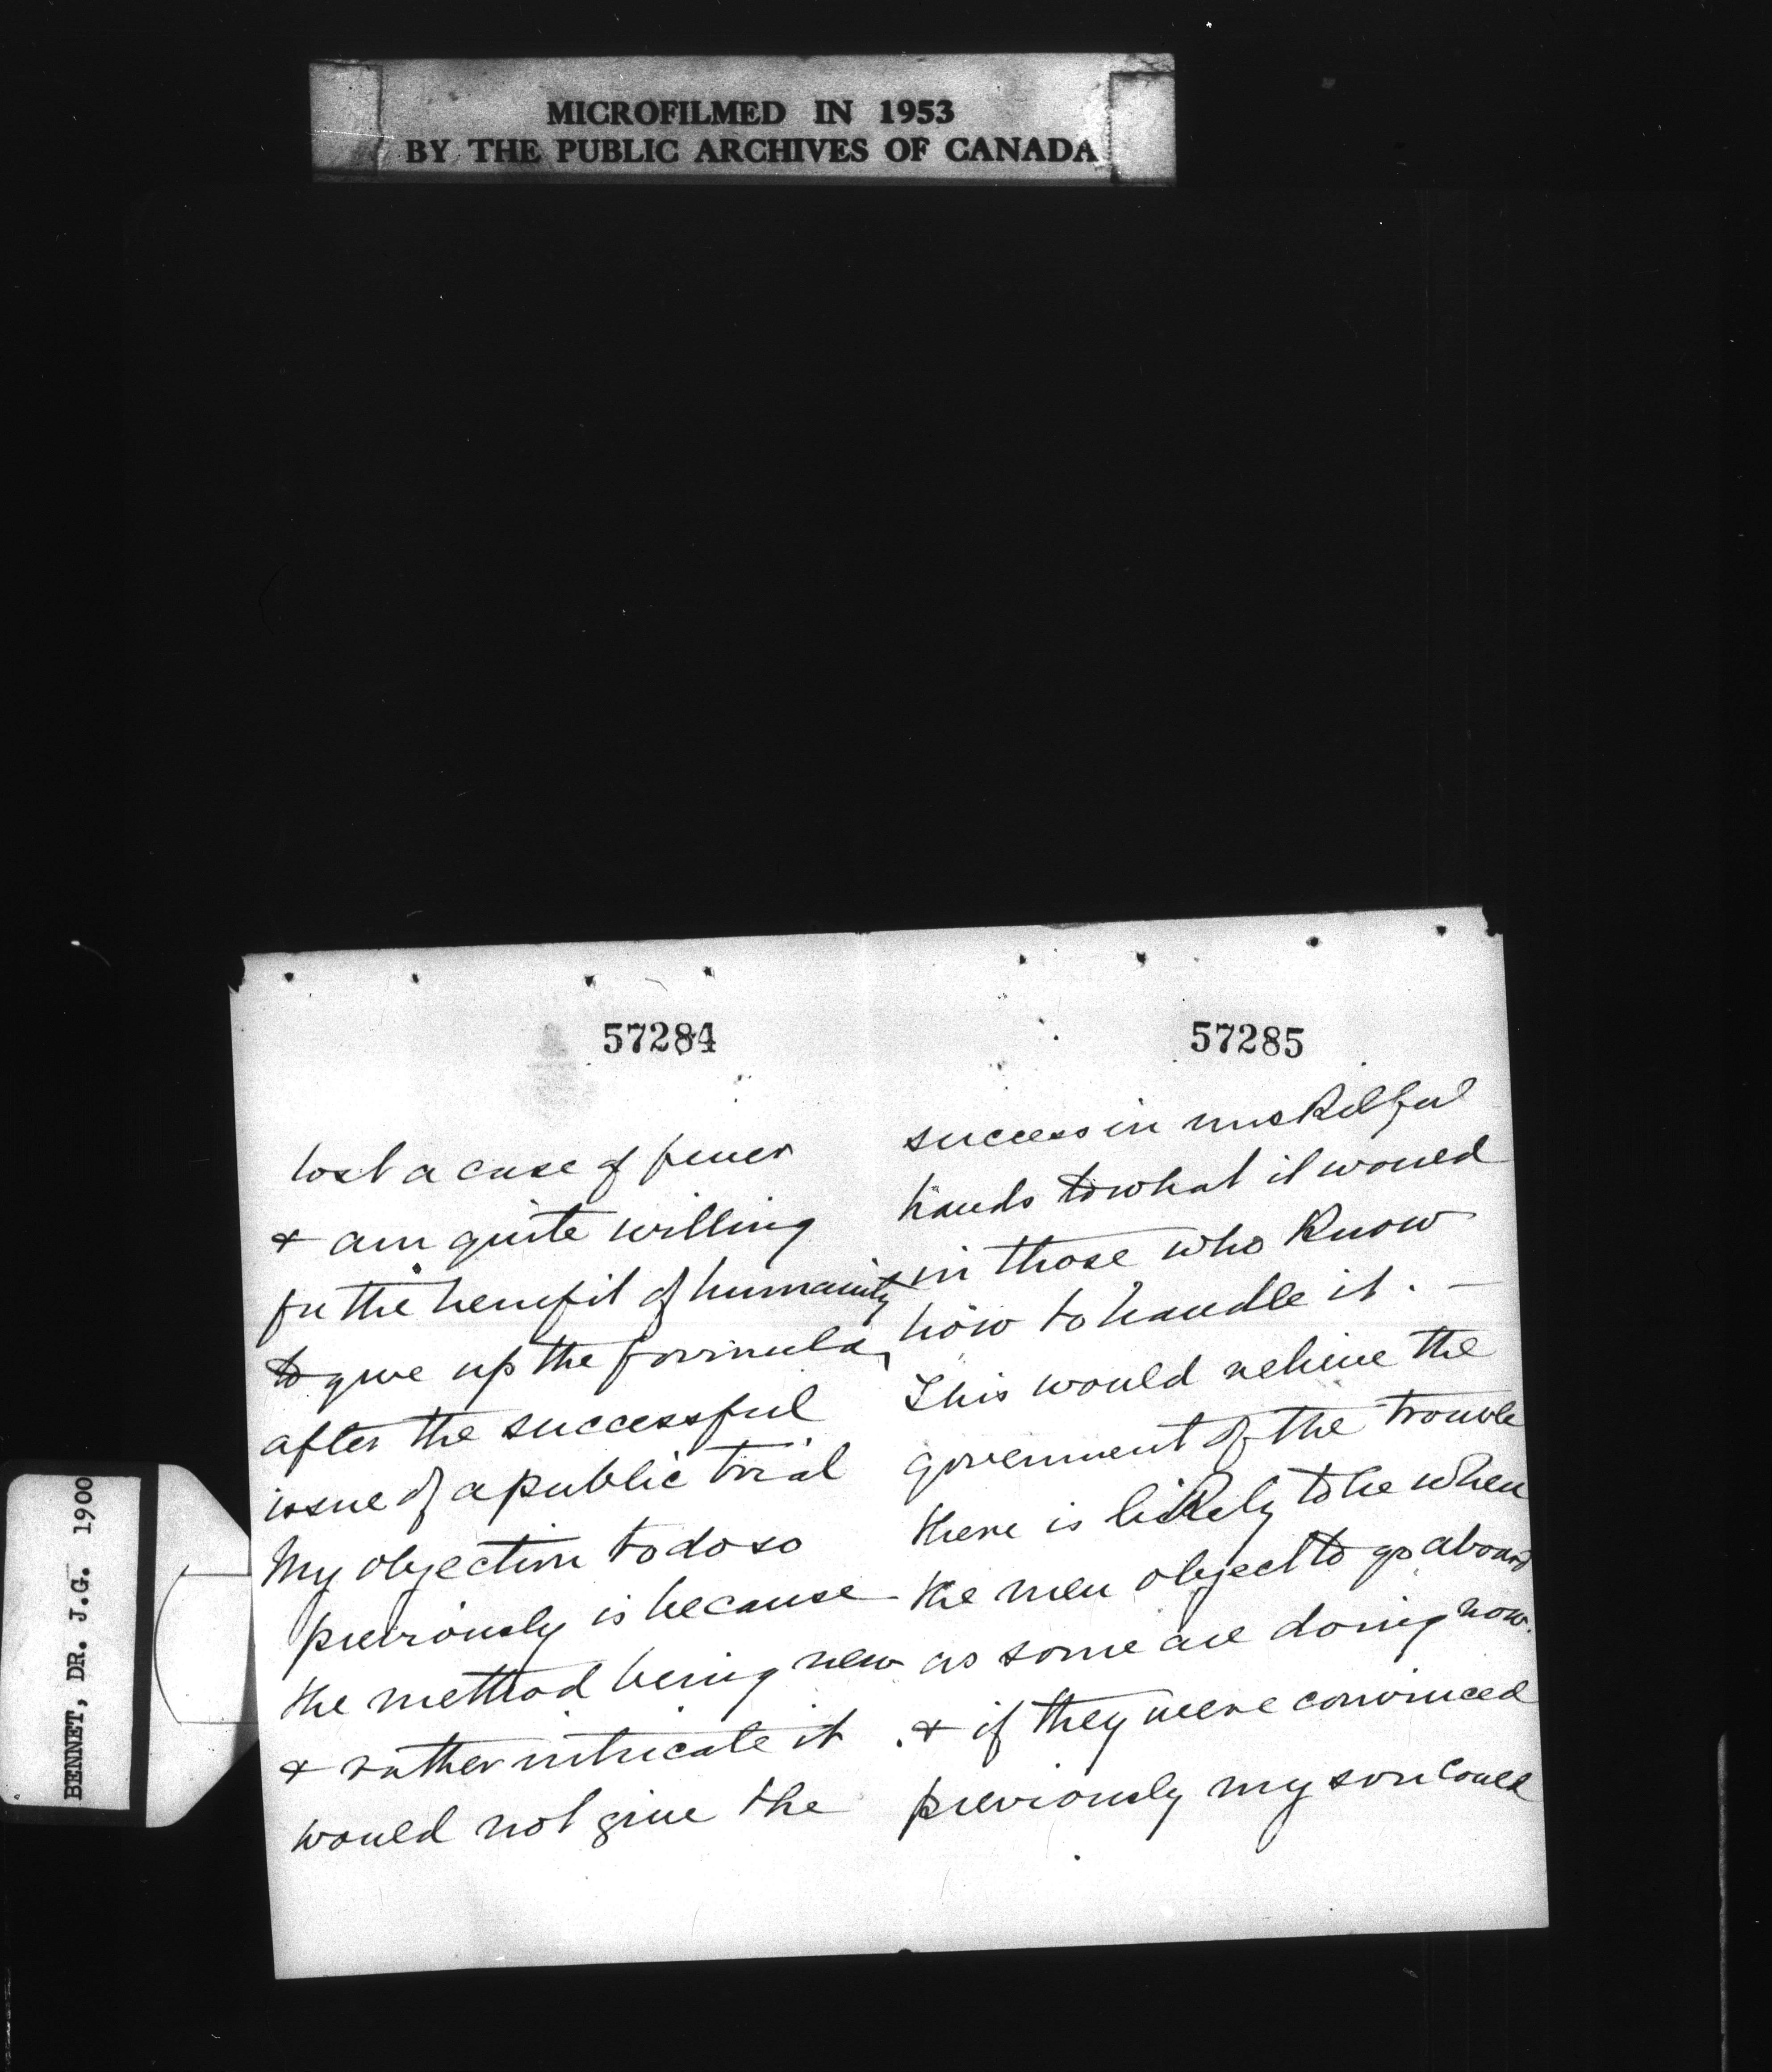 MICROFILMED IN 1953
BY THE PUBLIC ARCHIVES OF CANADA
BENNET, DR. J.G. 1900
57284
lost a case of fever
& am quite willing
for the benefit of humanity
to give up the formula,
after the successful
issue of a public trial
My objection to do so
previously is because
the method being new
& rather intricate it
would not give the
57285
success in unskilful
hands to what it would
in those who know
how to handle it. —
This would relieve the
government of the trouble
there is likely to be when
the men object to go aboard
as some are doing now.
& if they were convinced
previously my son could